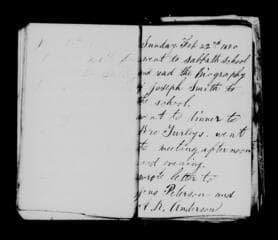 Sunday Feb 22nd 1880
went to Sabbath School
and read the Biography
of Joseph Smith to
the School.
went to dinner to
Bro Gurleys. went
to meeting afternoon
and evening.
wrote letter to
Peterson and
Anderson